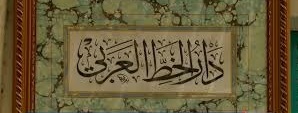 دار الخط العربي